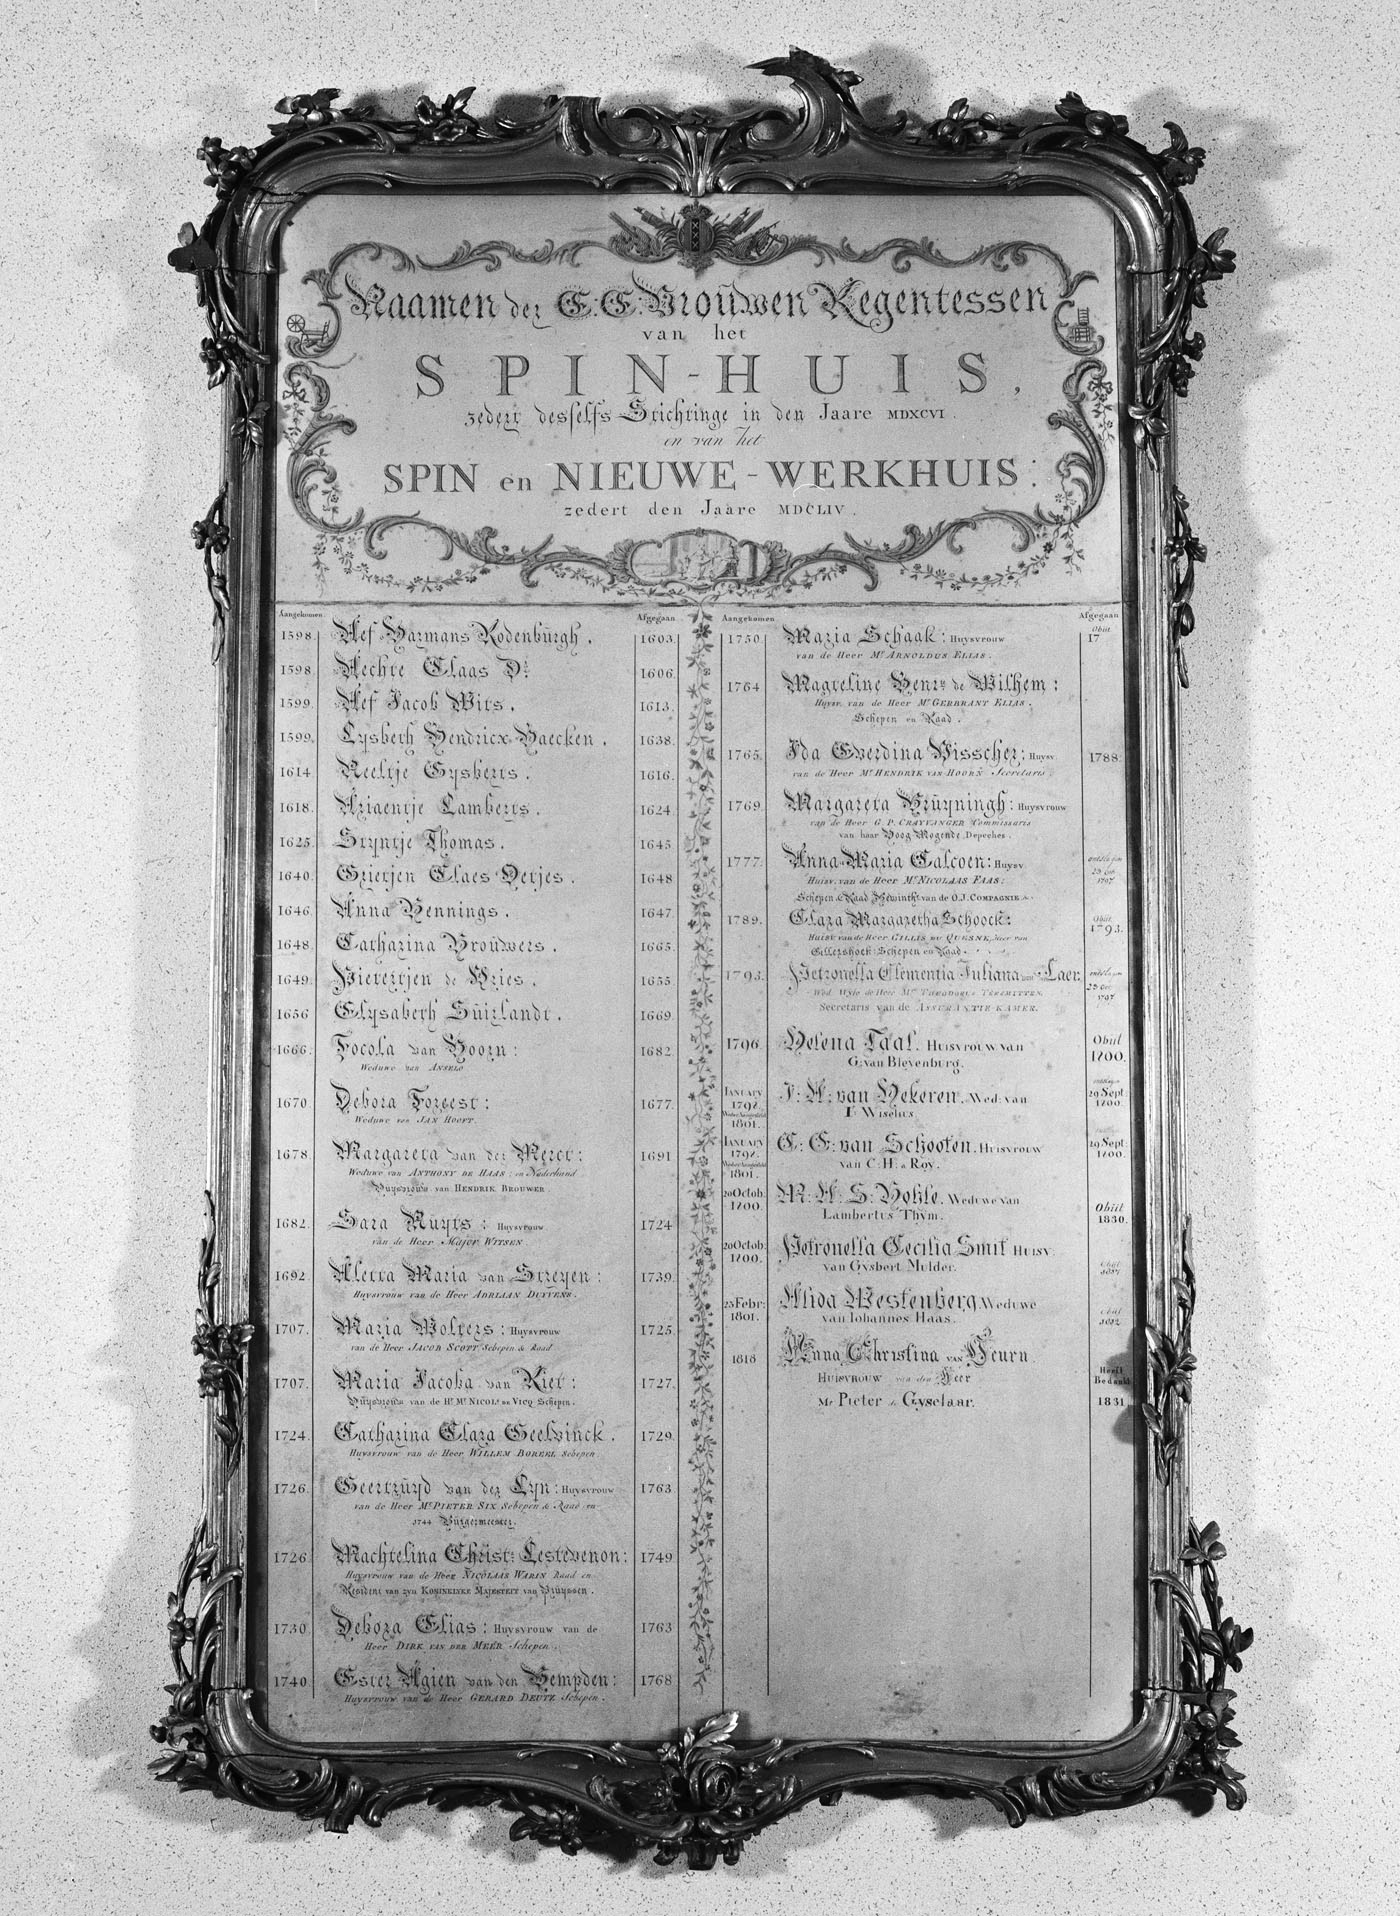 Naamen der E:E:Vrouwen Regentessen
van het
SPIN-HUIS,
zedert desselfs Stichtinge in den Jaare MDXCVI.
en van het
SPIN en NIEUWE-WERKHUIS:
zedert den Jaare MDCLIV.
Aangekomen Afgegaan
1598. Aef Harmans Rodenburgh. 1603.
1598. Aechte Claas Dr. 1606.
1599. Aef Jacob Wits. 1613.
1599. Lysbeth Hendricx Baecken. 1638.
1614. Neeltje Gysberts. 1616.
1618. Ariaentje Lamberts. 1624.
1625. Stryntje Thomas. 1645
1640. Grietjen Claes Detjes. 1648
1646. Anna Hennings. 1647.
1648. Catharina Brouwers. 1665.
1649. Pieretrjen de Vries. 1655
1656 Elysabeth Suirlandt. 1669.
1666. Focola van Hoorn: 1682.
Weduwe van ANSELO
1670 Debora Foreest: 1677.
Weduwe van JAN HOOFT.
1678. Margareta van der Merct: 1691
Weduwe van ANTHONY DE HAAS: en Naderhand
Huysvrouw van HENDRIK BROUWER
1682. Sara Nuyts: Huysvrouw 1724
van de Heer Major WITSEN.
1692. Aletta Maria van Streyen: 1739.
Huysvrouw van de Heer ADRIAAN DUYVENS.
1707. Maria Wolters: Huysvrouw 1725.
van de Heer JACOB SCOTT Schepen & Raad
1707. Maria Jacoba van Riet: 1727.
Huysvrouw van de Hr. Mr. NICOLs. DE VICQ Schepen.
1724. Catharina Clara Geelvinck. 1729.
Huysvrouw van de Heer WILLEM BOREEL Schepen
1726. Geertruyd van der Lyn: Huysvrouw 1763
van de Heer Mr. PIETER SIX Schepen & Raad en
1744 Burgermeester.
1726 Machtelina Christ: Lestevenon: 1749
Huysvrouw van de Heer NICOLAAS WARIN Raad en
Resident van zyn KONINKLYKE MAJESTEIT van Pruyssen.
1730. Debora Elias: Huysvrouw van de 1763
Heer DIRK VAN DER MEER Schepen.
1740 Ester Agien van den Hempden: 1768
Huysvrouw van de Heer GERARD DEUTZ Schepen.
Aangekomen Afgegaan
1750. Maria Schaak: Huysvrouw Obiit 17
van de Heer Mr. ARNOLDUS ELIAS.
1764 Magteline Henr. de Wilhem:
Huysv. van de Heer Mr. GERBRANT ELIAS.
Schepen en Raad.
1765. Ida Everdina Visscher: Huysv 1788.
van de Heer Mr. HENDRIK VAN HOORN Secretaris
1769. Margareta Bruyningh: Huysvrouw
van de Heer G.P. CRAYVANGER Commissaris
van haar Hoog Mogende Depeches.
1777. Anna Maria Calcoen: Huysv ontslagen 23 1797
Huisv. van de Heer Mr. NICOLAAS FAAS:
Schepen & Raad Bewinthr. van de O.I. COMPAGNIE &
1789. Clara Margaretha Schoock: Obiit 1793.
Huisv van de Heer GILLIS DU QUESNE, Heer van
Gillershoek: Schepen en Raad.
1793. Petronella Clementia Juliana van Laer. ontslagen 23 Oct 1797
Wed. Wyle de Heer Mr. THEODORUS TERSMITTEN.
Secretaris van de ASSURANTIE-KAMER.
1796. Helena Taal. HUISVROUW van Obiit 1800.
G: van Bleyenburg.
JANUARY 1798. Weder Aangesteld 1801. I: A: van Hekeren. Wed: van ontslagen 29 Sept. 1800.
Ir. Wiselius.
JANUARY 1798. Weder Aangesteld 1801. C: G: van Schooten. HUISVROUW 29 Sept. 1800.
van C: H: a Roy.
20 Octob: 1800. M: A: S: Hohle. Weduwe van Obiit 1830.
Lambertus Thym.
20 Octob: 1800. Petronella Cecilia Smit HUISV:
van Gysbert Mulder.
25 Febr: 1801. Alida Westenberg. Weduwe
van Iohannes Haas.
1818 Anna Christina VAN Teurn Heeft Bedankt
HUISVROUW van den Heer
Mr Pieter de Gyselaar. 1831